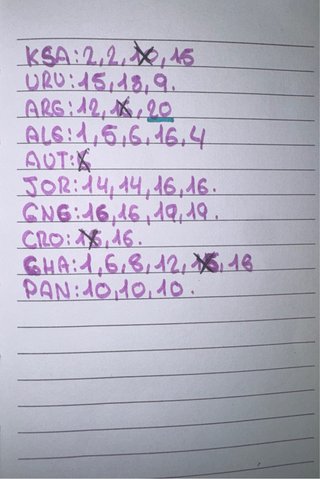 KSA: 2, 2, 10, 15
URU: 15, 18, 9.
ARG: 12, 20
ALG: 1, 5, 6, 16, 4
AUT:
JOR: 14, 14, 16, 16.
ENG: 16, 16, 19, 19.
CRO: 16.
GHA: 1, 6, 8, 12, 18
PAN: 10, 10, 10.